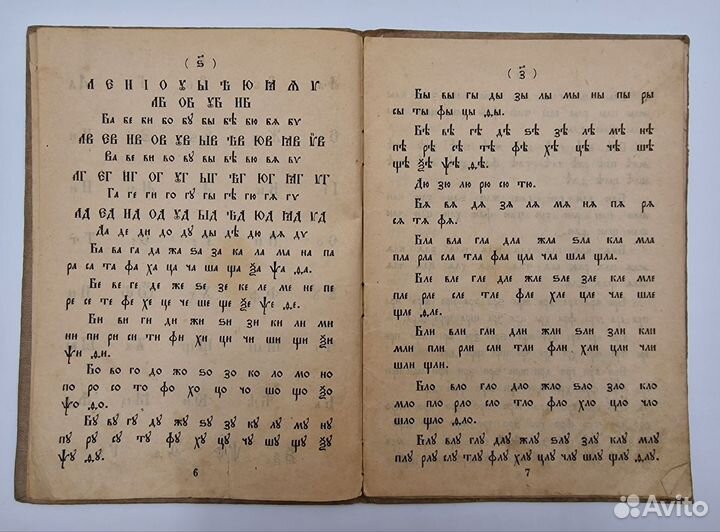 ( ѕ҃ )
А Е И І О Ꙋ Ы Ѣ Ю Ꙗ Ѧ Ѵ
АБ ОБ ꙊБ ИБ
Ба бе би бо бꙋ бы бѣ бю бѧ бѵ
АВ ЕВ ИВ ОВ ꙊВ ЫВ ѢВ ЮВ ꙖВ ѴВ
Ва ве ви во вꙋ вы вѣ вю вѧ вѵ
АГ ЕГ ИГ ОГ ꙊГ ЫГ ѢГ ЮГ ꙖГ ѴГ
Га ге ги го гꙋ гы гѣ гю гѧ гѵ
АД ЕД ИД ОД ꙊД ЫД ѢД ЮД ꙖД ѴД
Да де ди до дꙋ ды дѣ дю дѧ дѵ
Ба ва га да жа ѕа за ка ла ма на па
ра са та фа ха ца ча ша ща ѯа ѱа ѳа.
Бе ве ге де же ѕе зе ке ле ме не пе
ре се те фе хе це че ше ще ѯе ѱе ѳе.
Би ви ги ди жи ѕи зи ки ли ми
ни пи ри си ти фи хи ци чи ши щи ѯи
ѱи ѳи.
Бо во го до жо ѕо зо ко ло мо но
по ро со то фо хо цо чо шо що ѯо
ѱо ѳо.
Бꙋ вꙋ гꙋ дꙋ жꙋ ѕꙋ зꙋ кꙋ лꙋ мꙋ нꙋ
пꙋ рꙋ сꙋ тꙋ фꙋ хꙋ цꙋ чꙋ шꙋ щꙋ ѯꙋ
ѱꙋ ѳꙋ.
6
( з҃ )
Бы вы гы ды зы лы мы ны пы ры
сы ты фы цы ѳы.
Бѣ вѣ гѣ дѣ ѕѣ зѣ лѣ мѣ нѣ
пѣ рѣ сѣ тѣ фѣ хѣ цѣ чѣ шѣ
щѣ ѯѣ ѱѣ ѳѣ.
Дю зю лю рю сю тю.
Бѧ вѧ дѧ зѧ лѧ мѧ нѧ пѧ рѧ
сѧ тѧ фѧ.
Бла вла гла дла жла ѕла зла кла мла
пла рла сла тла фла цла чла шла щла.
Бле вле гле дле жле ѕле зле кле мле
пле рле сле тле фле хле цле чле шле
щле ѳле.
Бли вли гли дли жли ѕли зли кли
мли пли рли сли тли фли хли цли чли
шли щли.
Бло вло гло дло жло ѕло зло кло
мло пло рло сло тло фло хло цло чло
шло щло ѳло.
Блꙋ влꙋ глꙋ длꙋ жлꙋ ѕлꙋ злꙋ клꙋ млꙋ
плꙋ рлꙋ слꙋ тлꙋ флꙋ хлꙋ цлꙋ члꙋ шлꙋ щлꙋ ѳлꙋ.
7
Avito